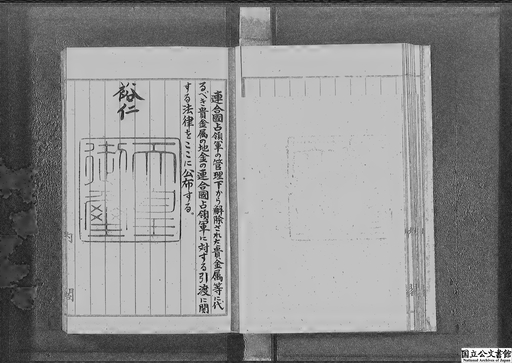 連合國占領軍の管理下から解除された貴金属等に代
るべき貴金属の地金の連合國占領軍に対する引渡に関
する法律をここに公布する。
裕仁
天皇
御璽
国立公文書館
National Archives of Japan